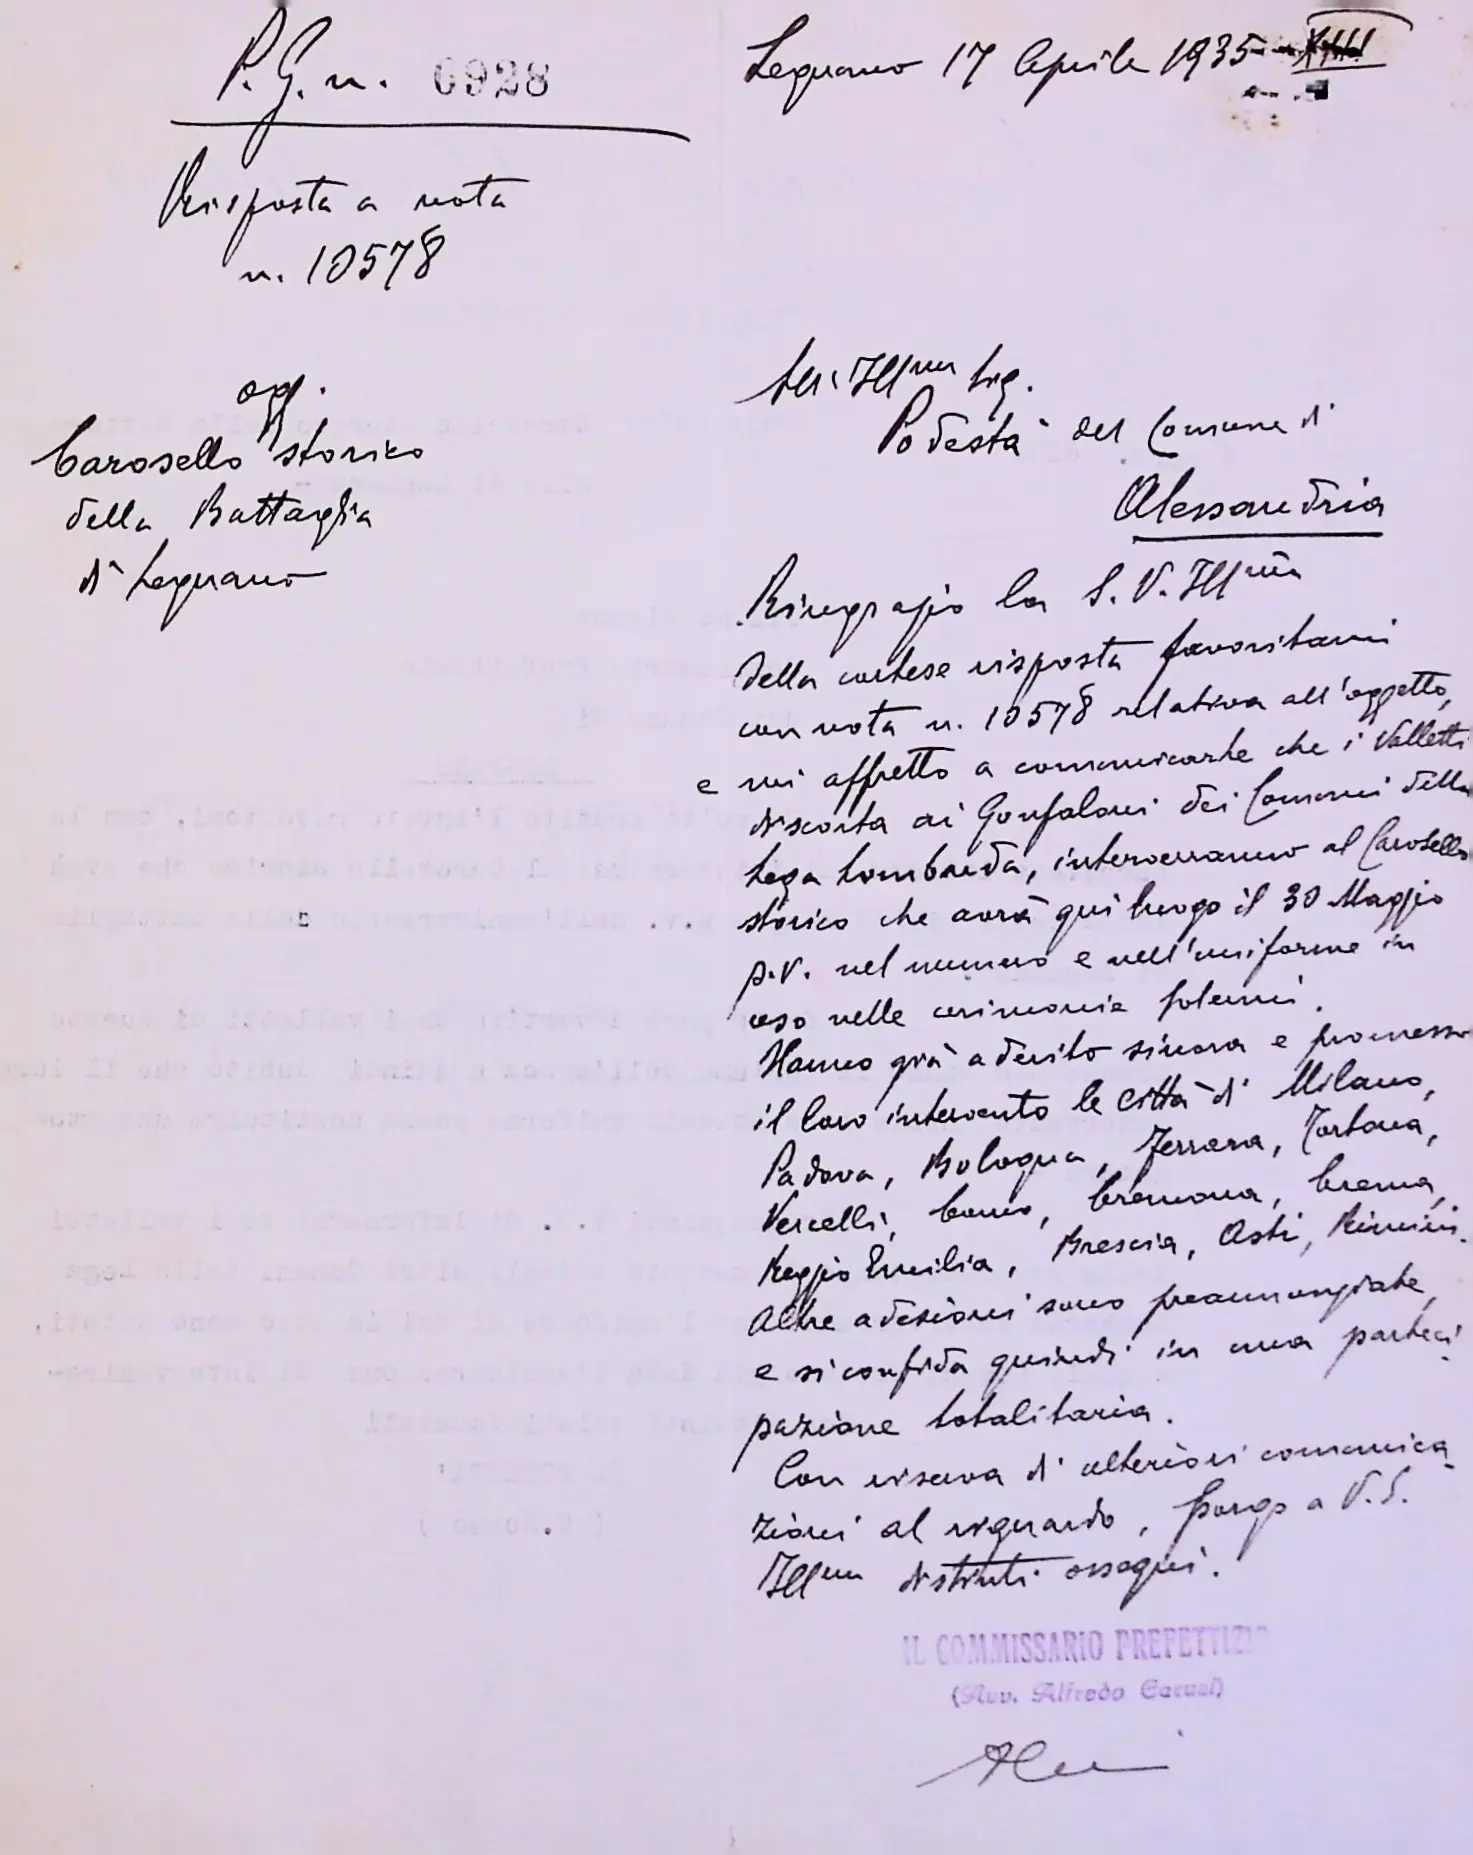 P. G. n. 6928
Legnano 17 Aprile 1935 - XIII
Risposta a nota
n. 10578
ogg.
Carosello storico
della Battaglia
di Legnano
All'Ill.mo Sig.
Podestà del Comune di
Alessandria
Ringrazio la S. V. Ill.ma
della cortese risposta favoritami
con nota n. 10578 relativa all'oggetto,
e mi affretto a comunicarLe che i Valletti
di scorta ai Gonfaloni dei Comuni della
Lega Lombarda, interverranno al Carosello
storico che avrà qui luogo il 30 Maggio
p.v. nel numero e nell'uniforme in
uso nelle cerimonie solenni.
Hanno già aderito sinora e promesso
il loro intervento le città di Milano,
Padova, Bologna, Ferrara, Tortona,
Vercelli, Como, Cremona, Crema,
Reggio Emilia, Brescia, Asti, Rimini.
Altre adesioni sono preannunziate,
e si confida quindi in una parteci
pazione totalitaria.
Con riserva di ulteriori comunica
zioni al riguardo, porgo a V.S.
Ill.ma distinti ossequi.
IL COMMISSARIO PREFETTIZIO
(Avv. Alfredo Carusi)